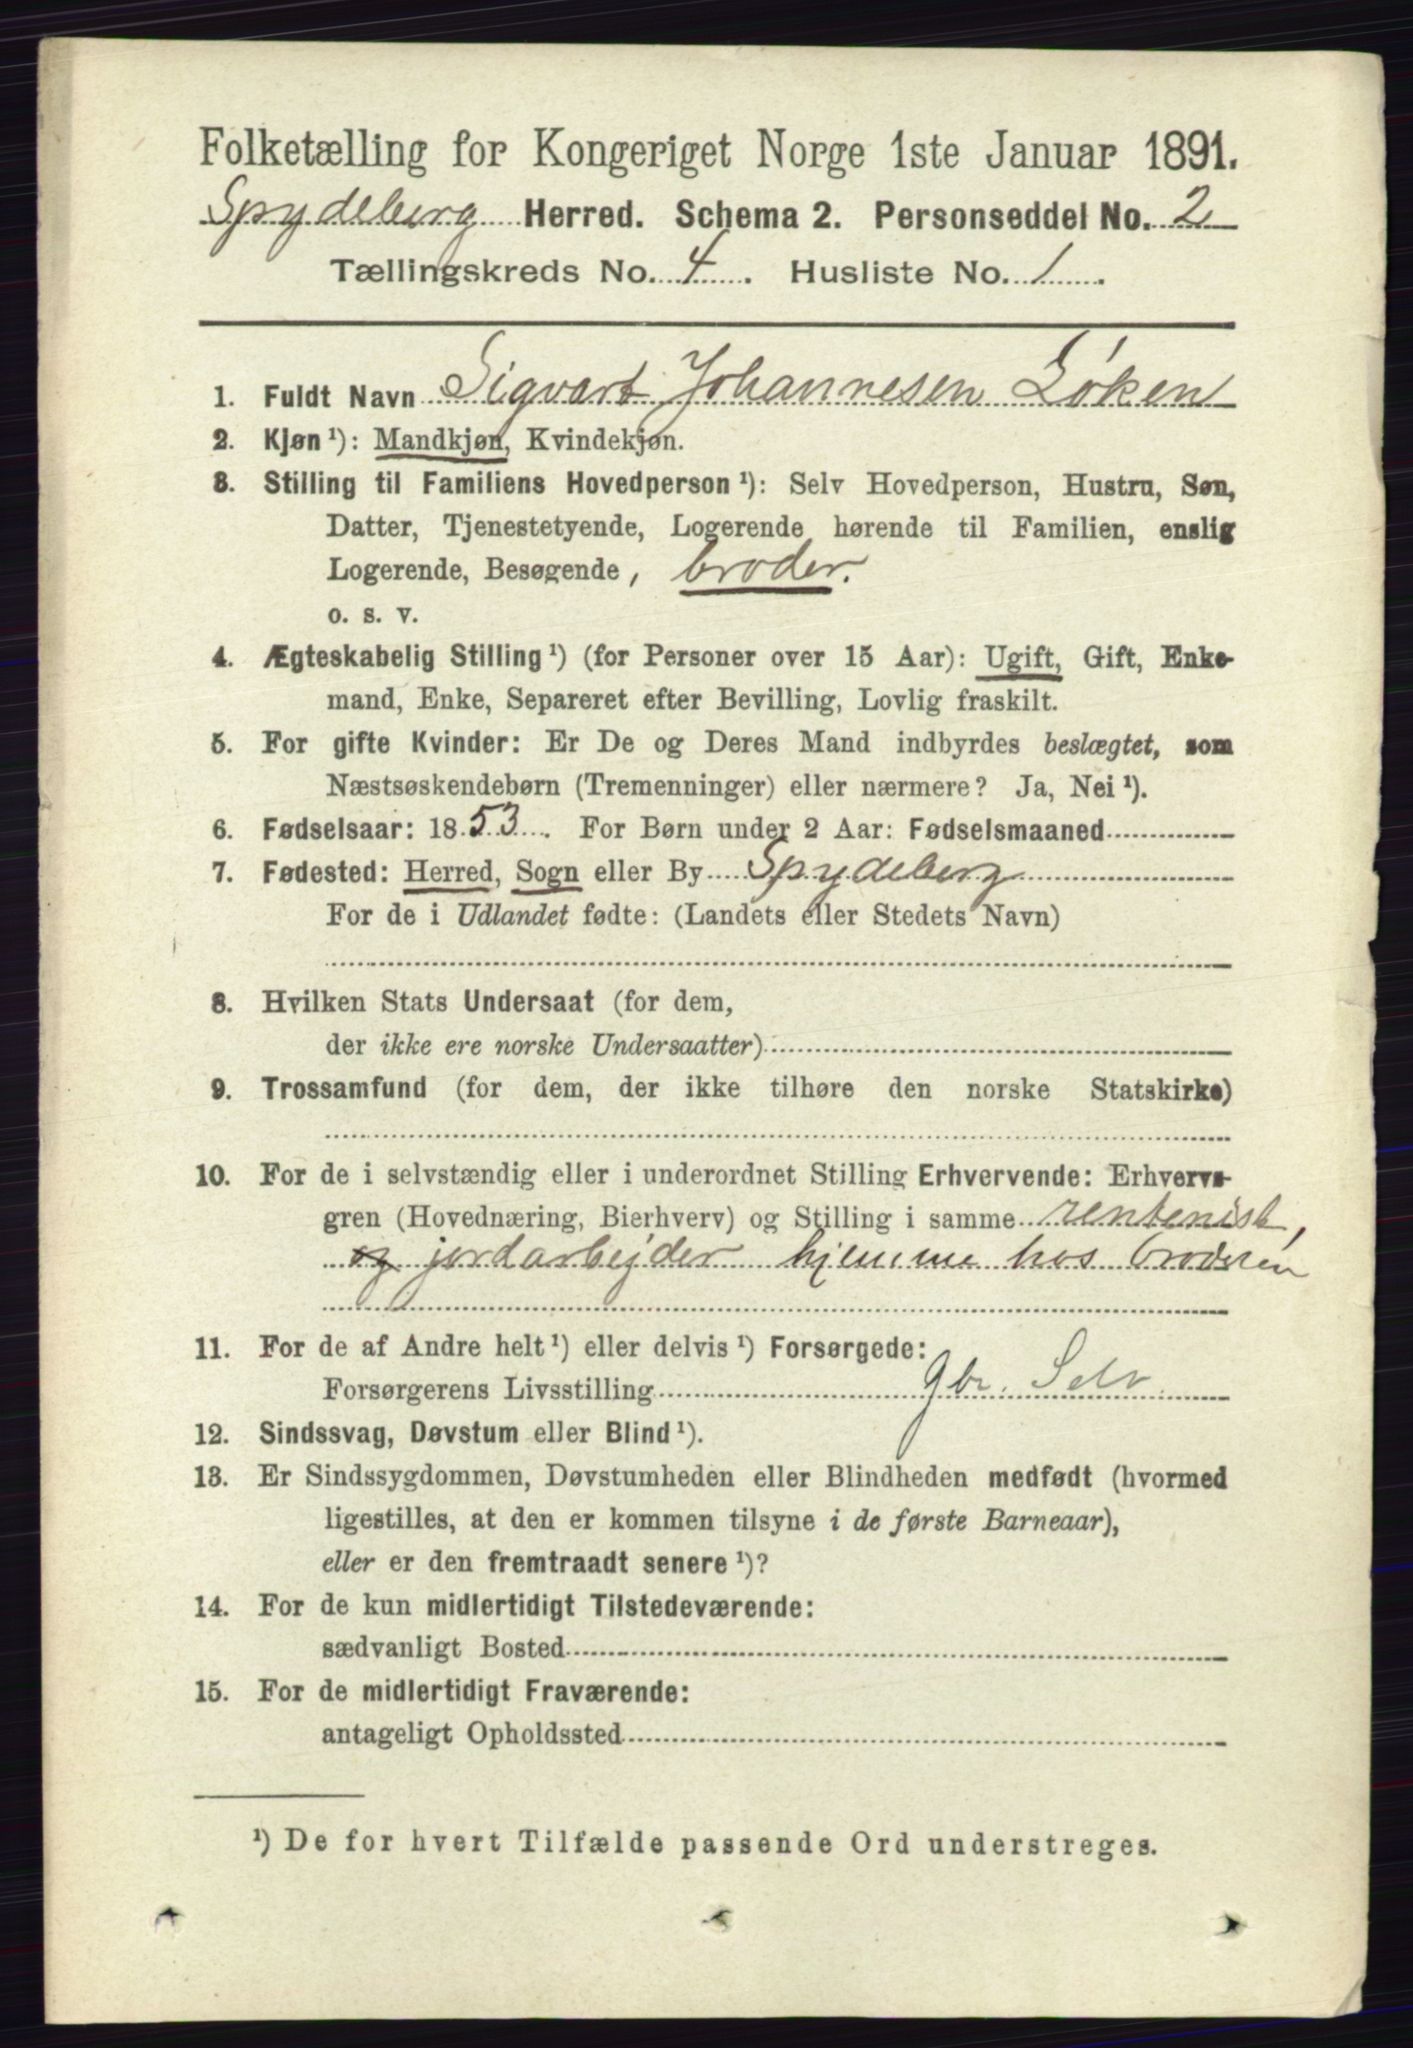 Folketælling for Kongeriget Norge 1ste Januar 1891.
Spydeberg Herred. Schema 2. Personseddel No. 2
Tællingskreds No. 4. Husliste No. 1.
1. Fuldt Navn Sigvart Johannesen Løken
2. Kjøn ¹): Mandkjøn, Kvindekjøn.
3. Stilling til Familiens Hovedperson ¹): Selv Hovedperson, Hustru, Søn,
Datter, Tjenestetyende, Logerende hørende til Familien, enslig
Logerende, Besøgende, broder.
o. s. v.
4. Ægteskabelig Stilling ¹) (for Personer over 15 Aar): Ugift, Gift, Enke-
mand, Enke, Separeret efter Bevilling, Lovlig fraskilt.
5. For gifte Kvinder: Er De og Deres Mand indbyrdes beslægtet, som
Næstsøskendebørn (Tremenninger) eller nærmere? Ja, Nei ¹).
6. Fødselsaar: 1853. For Børn under 2 Aar: Fødselsmaaned
7. Fødested: Herred, Sogn eller By Spydeberg
For de i Udlandet fødte: (Landets eller Stedets Navn)
8. Hvilken Stats Undersaat (for dem,
der ikke ere norske Undersaatter)
9. Trossamfund (for dem, der ikke tilhøre den norske Statskirke)
10. For de i selvstændig eller i underordnet Stilling Erhvervende: Erhvervs-
gren (Hovednæring, Bierhverv) og Stilling i samme rentenist,
og jordarbejder hjemme hos broderen
11. For de af Andre helt ¹) eller delvis ¹) Forsørgede:
Forsørgerens Livsstilling Gbr. Selv
12. Sindssvag, Døvstum eller Blind ¹).
13. Er Sindssygdommen, Døvstumheden eller Blindheden medfødt (hvormed
ligestilles, at den er kommen tilsyne i de første Barneaar),
eller er den fremtraadt senere ¹)?
14. For de kun midlertidigt Tilstedeværende:
sædvanligt Bosted
15. For de midlertidigt Fraværende:
antageligt Opholdssted
¹) De for hvert Tilfælde passende Ord understreges.